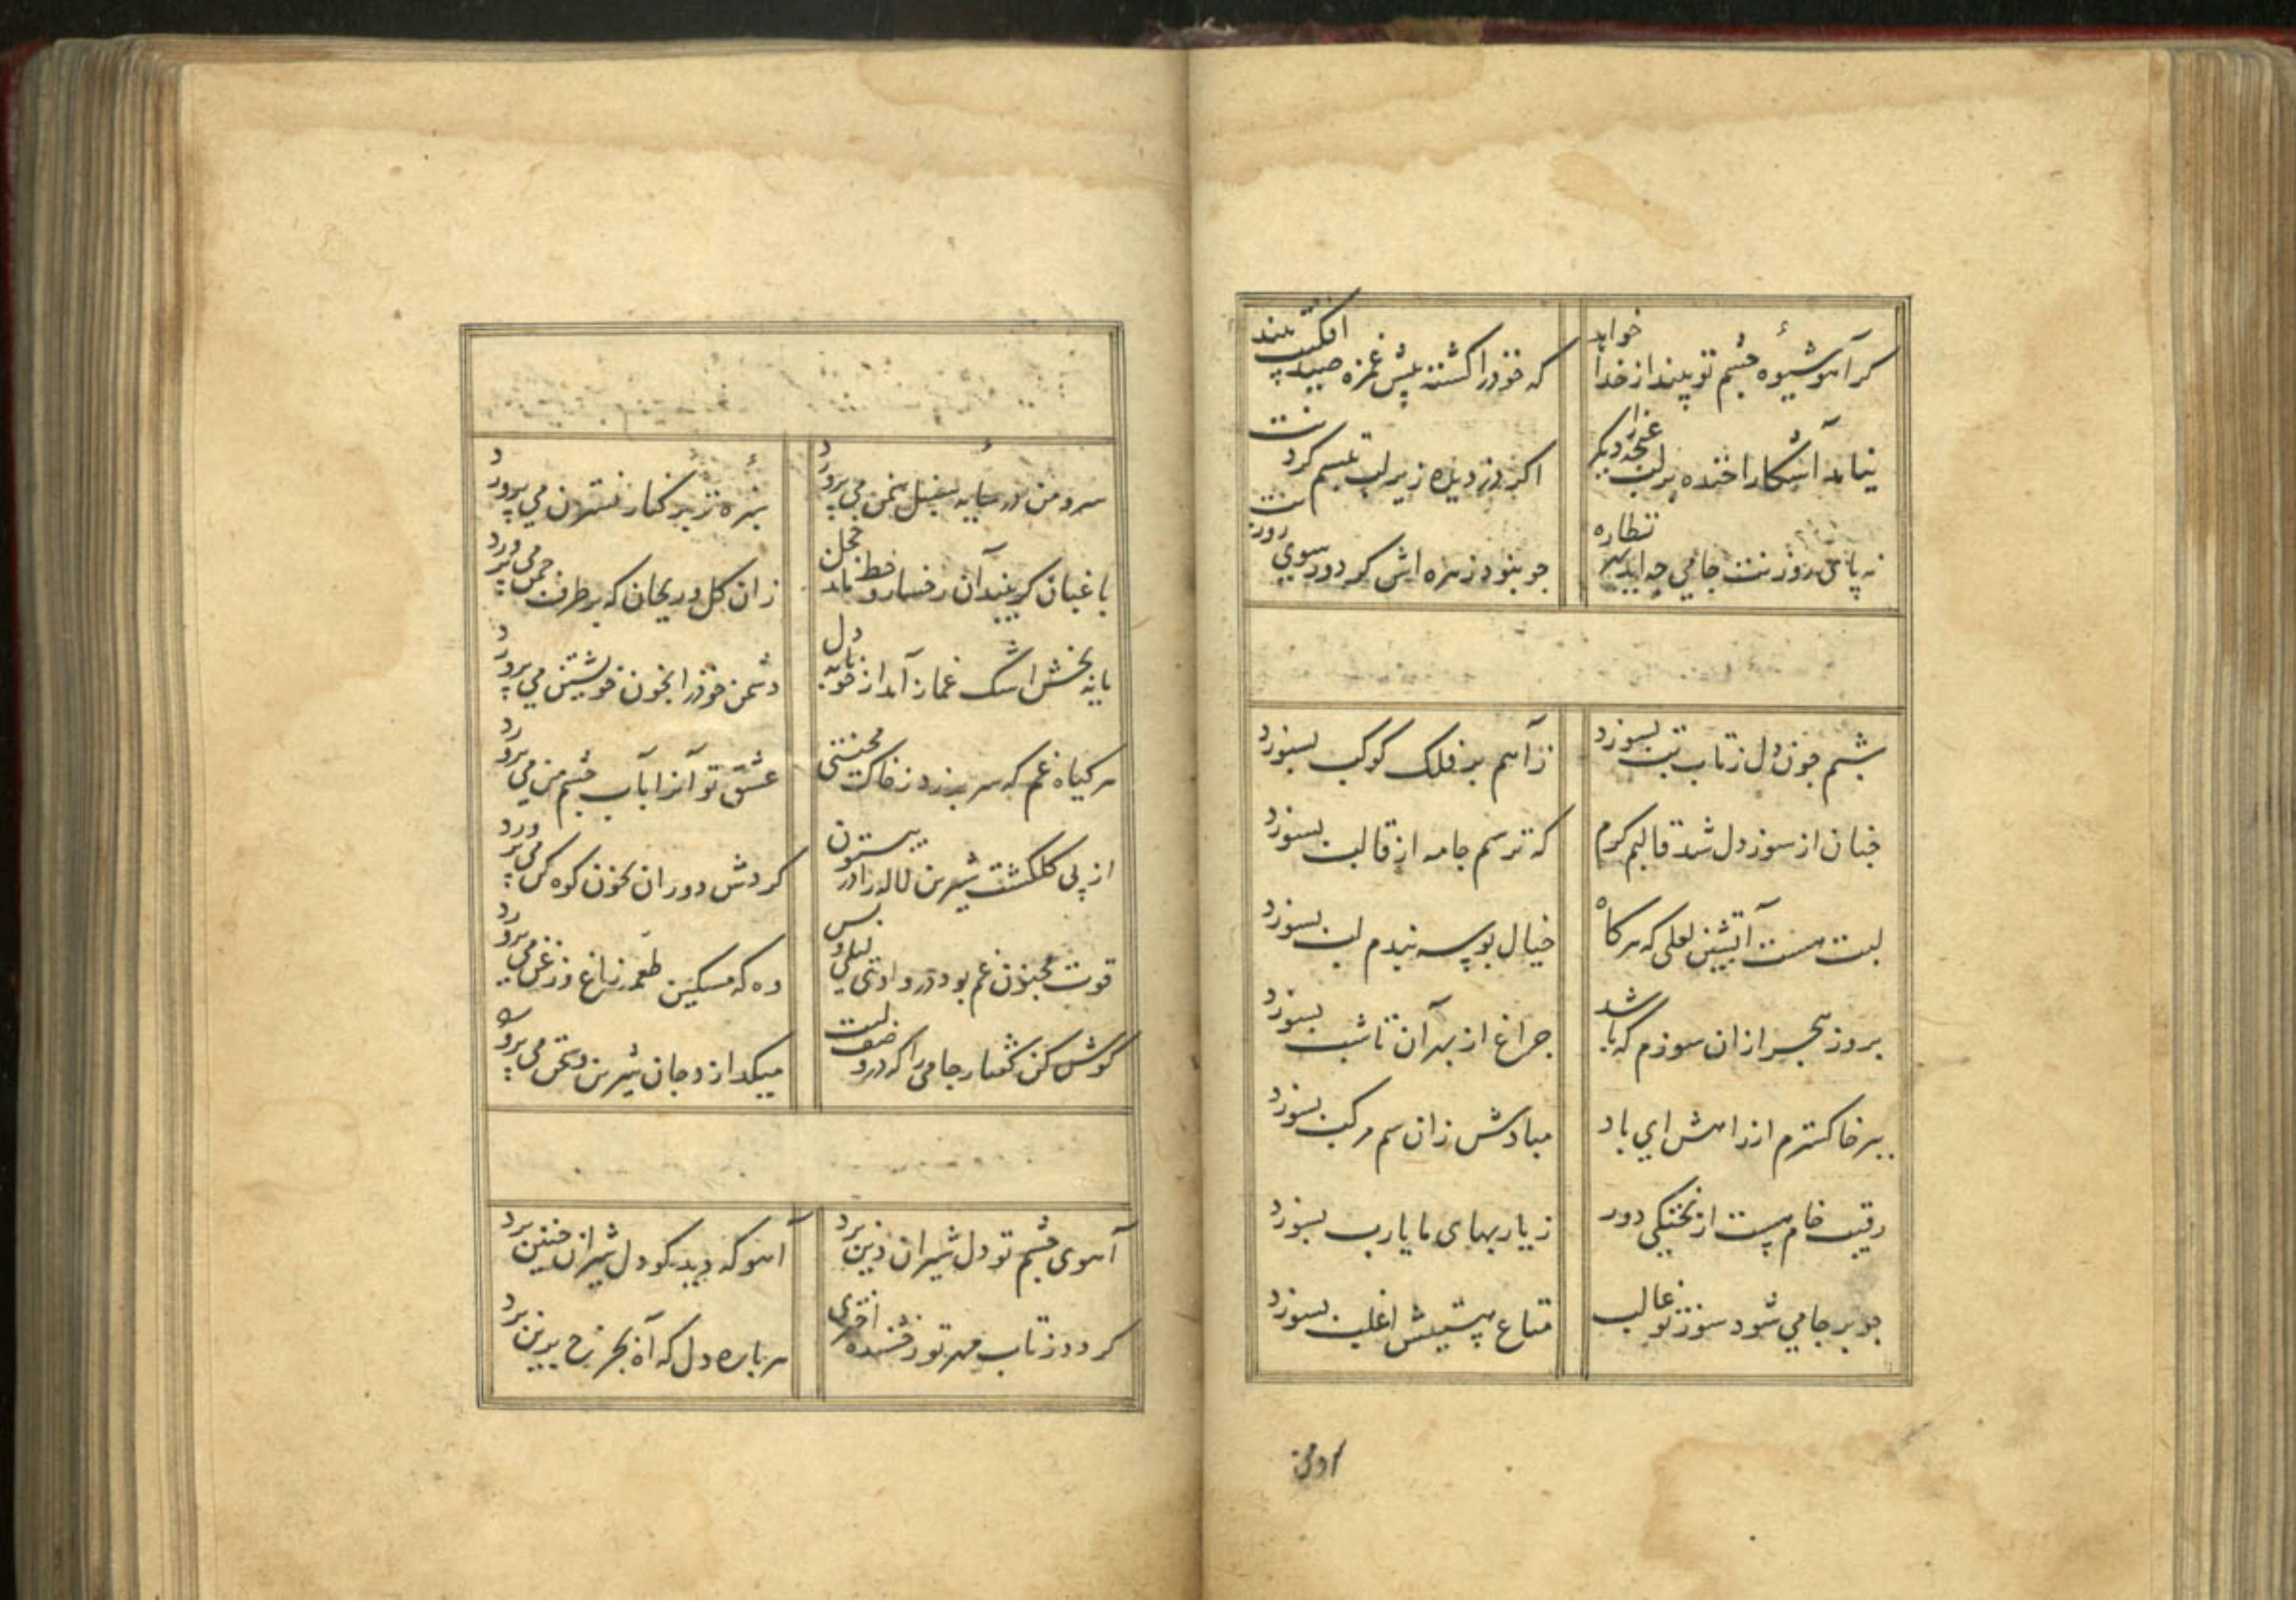 کر آهو شیوهٔ چشم تو بیند از خدا خواهد
که خود را کشته پیش غمزه صید افکنت بیند
نیاید آشکارا خنده بر لب غنچه را دیگر
اگر دزدیده زیر لب تبسم کردنت بیند
نه پای روزنت جامی چه آید بهر نظاره
چو بنود زهره اش کز دور سوی روزنت بیند
شبم چون دل ز تاب تب بسوزد
ز آهم بر فلک کوکب بسوزد
چنان از سوز دل شد قالبم کرم
که ترسم جامه از قالب بسوزد
لبت هست آتشین لعلی که هرکاه
خیال بوسه بندم لب بسوزد
بروز هجر ازان سوزم که باشد
چراغ از بهر آن تا شب بسوزد
ببر خاکسترم از راهش ای باد
مبادش زان سم مرکب بسوزد
رقیب خام هست از پختکی دور
ز یاربهای ما یارب بسوزد
چو بر جامی شود سوز تو غالب
متاع هستیش اغلب بسوزد
سرو من
سرو من در سایه سنبل سمن می پرورد
سبزه تر بر کنار نسترن می پرورد
باغبان کر بیند آن رخسار و خط ماند خجل
زان کل و ریحان که بر طرف چمن می پرورد
یا نه بخش اشک غماز آمد از خونابه دل
دشمن خود را بخون خویشتن می پرورد
هر کیاه غم که سر بر زد ز خاک محنتی
عشق تو آنرا بآب چشم من می پرورد
از پی کلکشت شیرین لاله را در بیستون
کردش دوران بخون کوه کن می پرورد
قوت مجنون غم بود در وادی لیلی و بس
وه که مسکین طعمه زاغ و زغن می پرورد
کوش کن کفتار جامی را که در وصف لبت
میکدازد جان شیرین و سخن می پرورد
آهوی چشم تو دل شیران دین برد
آهو که دید کو دل شیران چنین برد
کردد ز تاب مهر تو رخشنده اختری
هر پاره دل که آه بچرخ برین برد